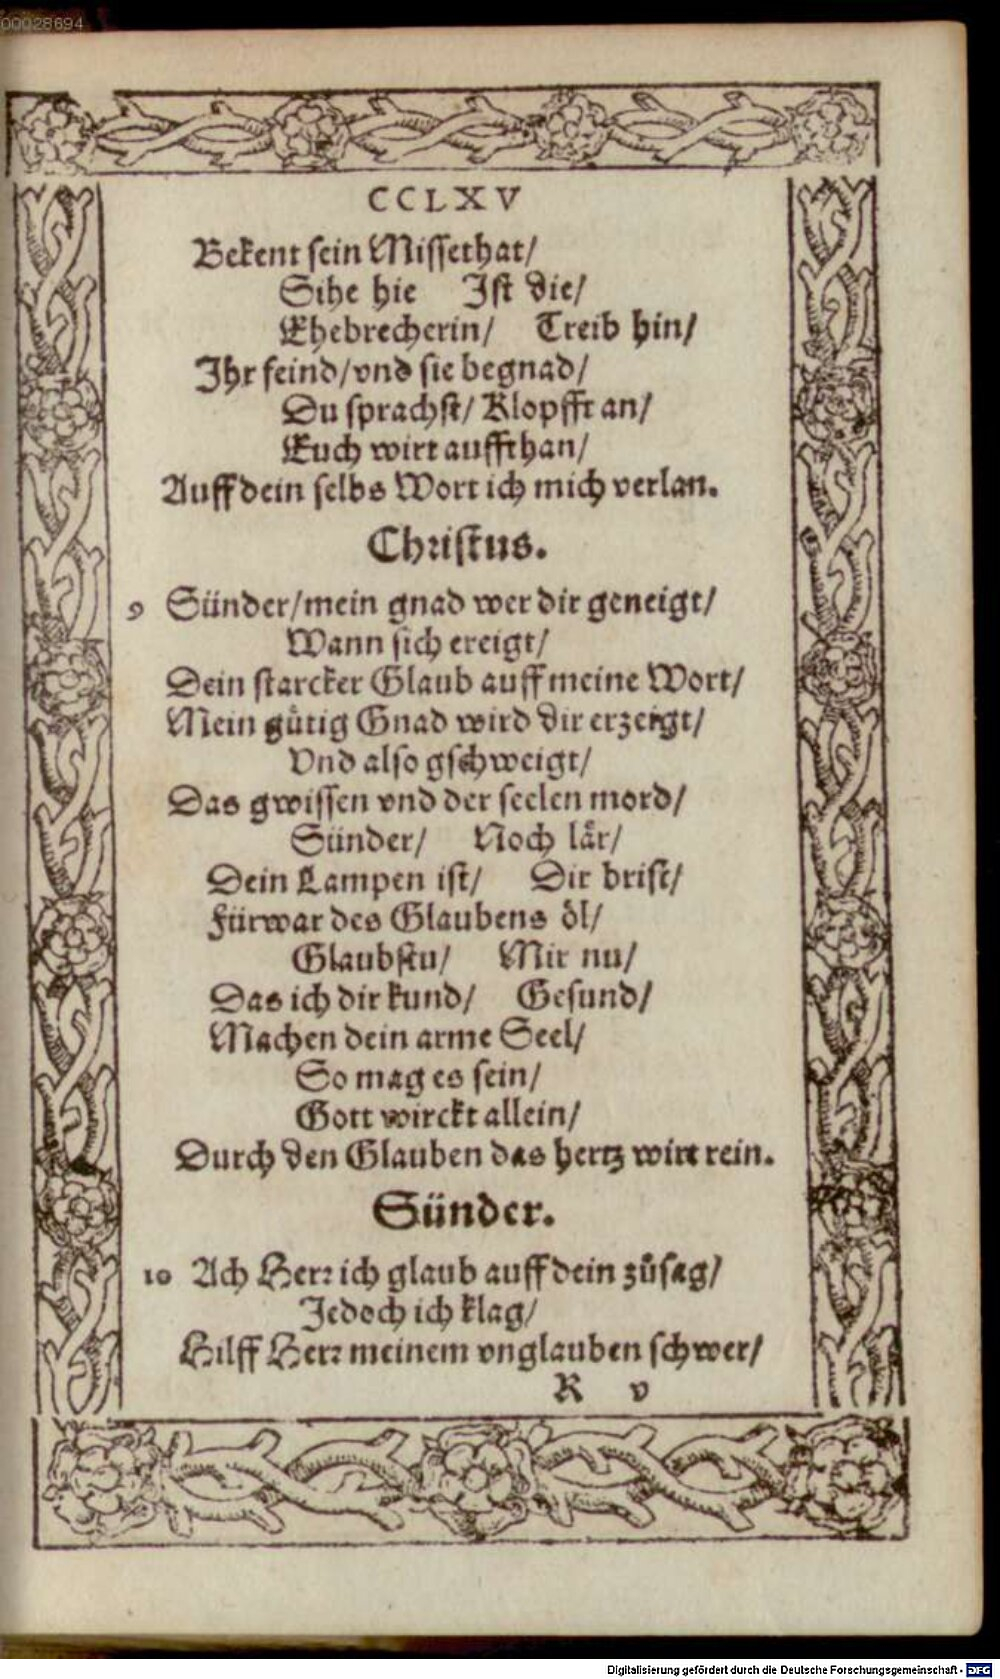 00028694
CCLXV
Bekent sein Missethat/
Sihe hie Ist die/
Ehebrecherin/ Treib hin/
Ihr feind/vnd sie begnad/
Du sprachst/ Klopfft an/
Euch wirt auffthan/
Auff dein selbs Wort ich mich verlan.
Christus.
9 Sünder/mein gnad wer dir geneigt/
Wann sich ereigt/
Dein starcker Glaub auff meine Wort/
Mein gütig Gnad wird dir erzeigt/
Vnd also gschweigt/
Das gwissen vnd der seelen mord/
Sünder/ Noch lår/
Dein Lampen ist/ Dir brist/
Fürwar des Glaubens öl/
Glaubstu/ Mir nu/
Das ich dir kund/ Gesund/
Machen dein arme Seel/
So mag es sein/
Gott wirckt allein/
Durch den Glauben das hertz wirt rein.
Sünder.
10 Ach Herr ich glaub auff dein zůsag/
Jedoch ich klag/
Hilff Herr meinem vnglauben schwer/
R v
Digitalisierung gefördert durch die Deutsche Forschungsgemeinschaft - DFG